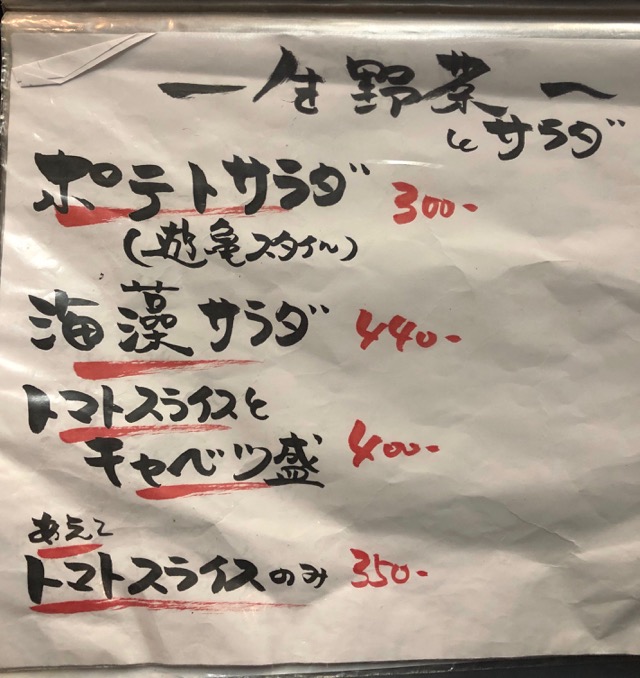 生野菜
とサラダ
ポテトサラダ 300-
(遊亀スタイル)
海藻サラダ 440-
トマトスライスと
キャベツ盛 400-
あえて
トマトスライスのみ 350-